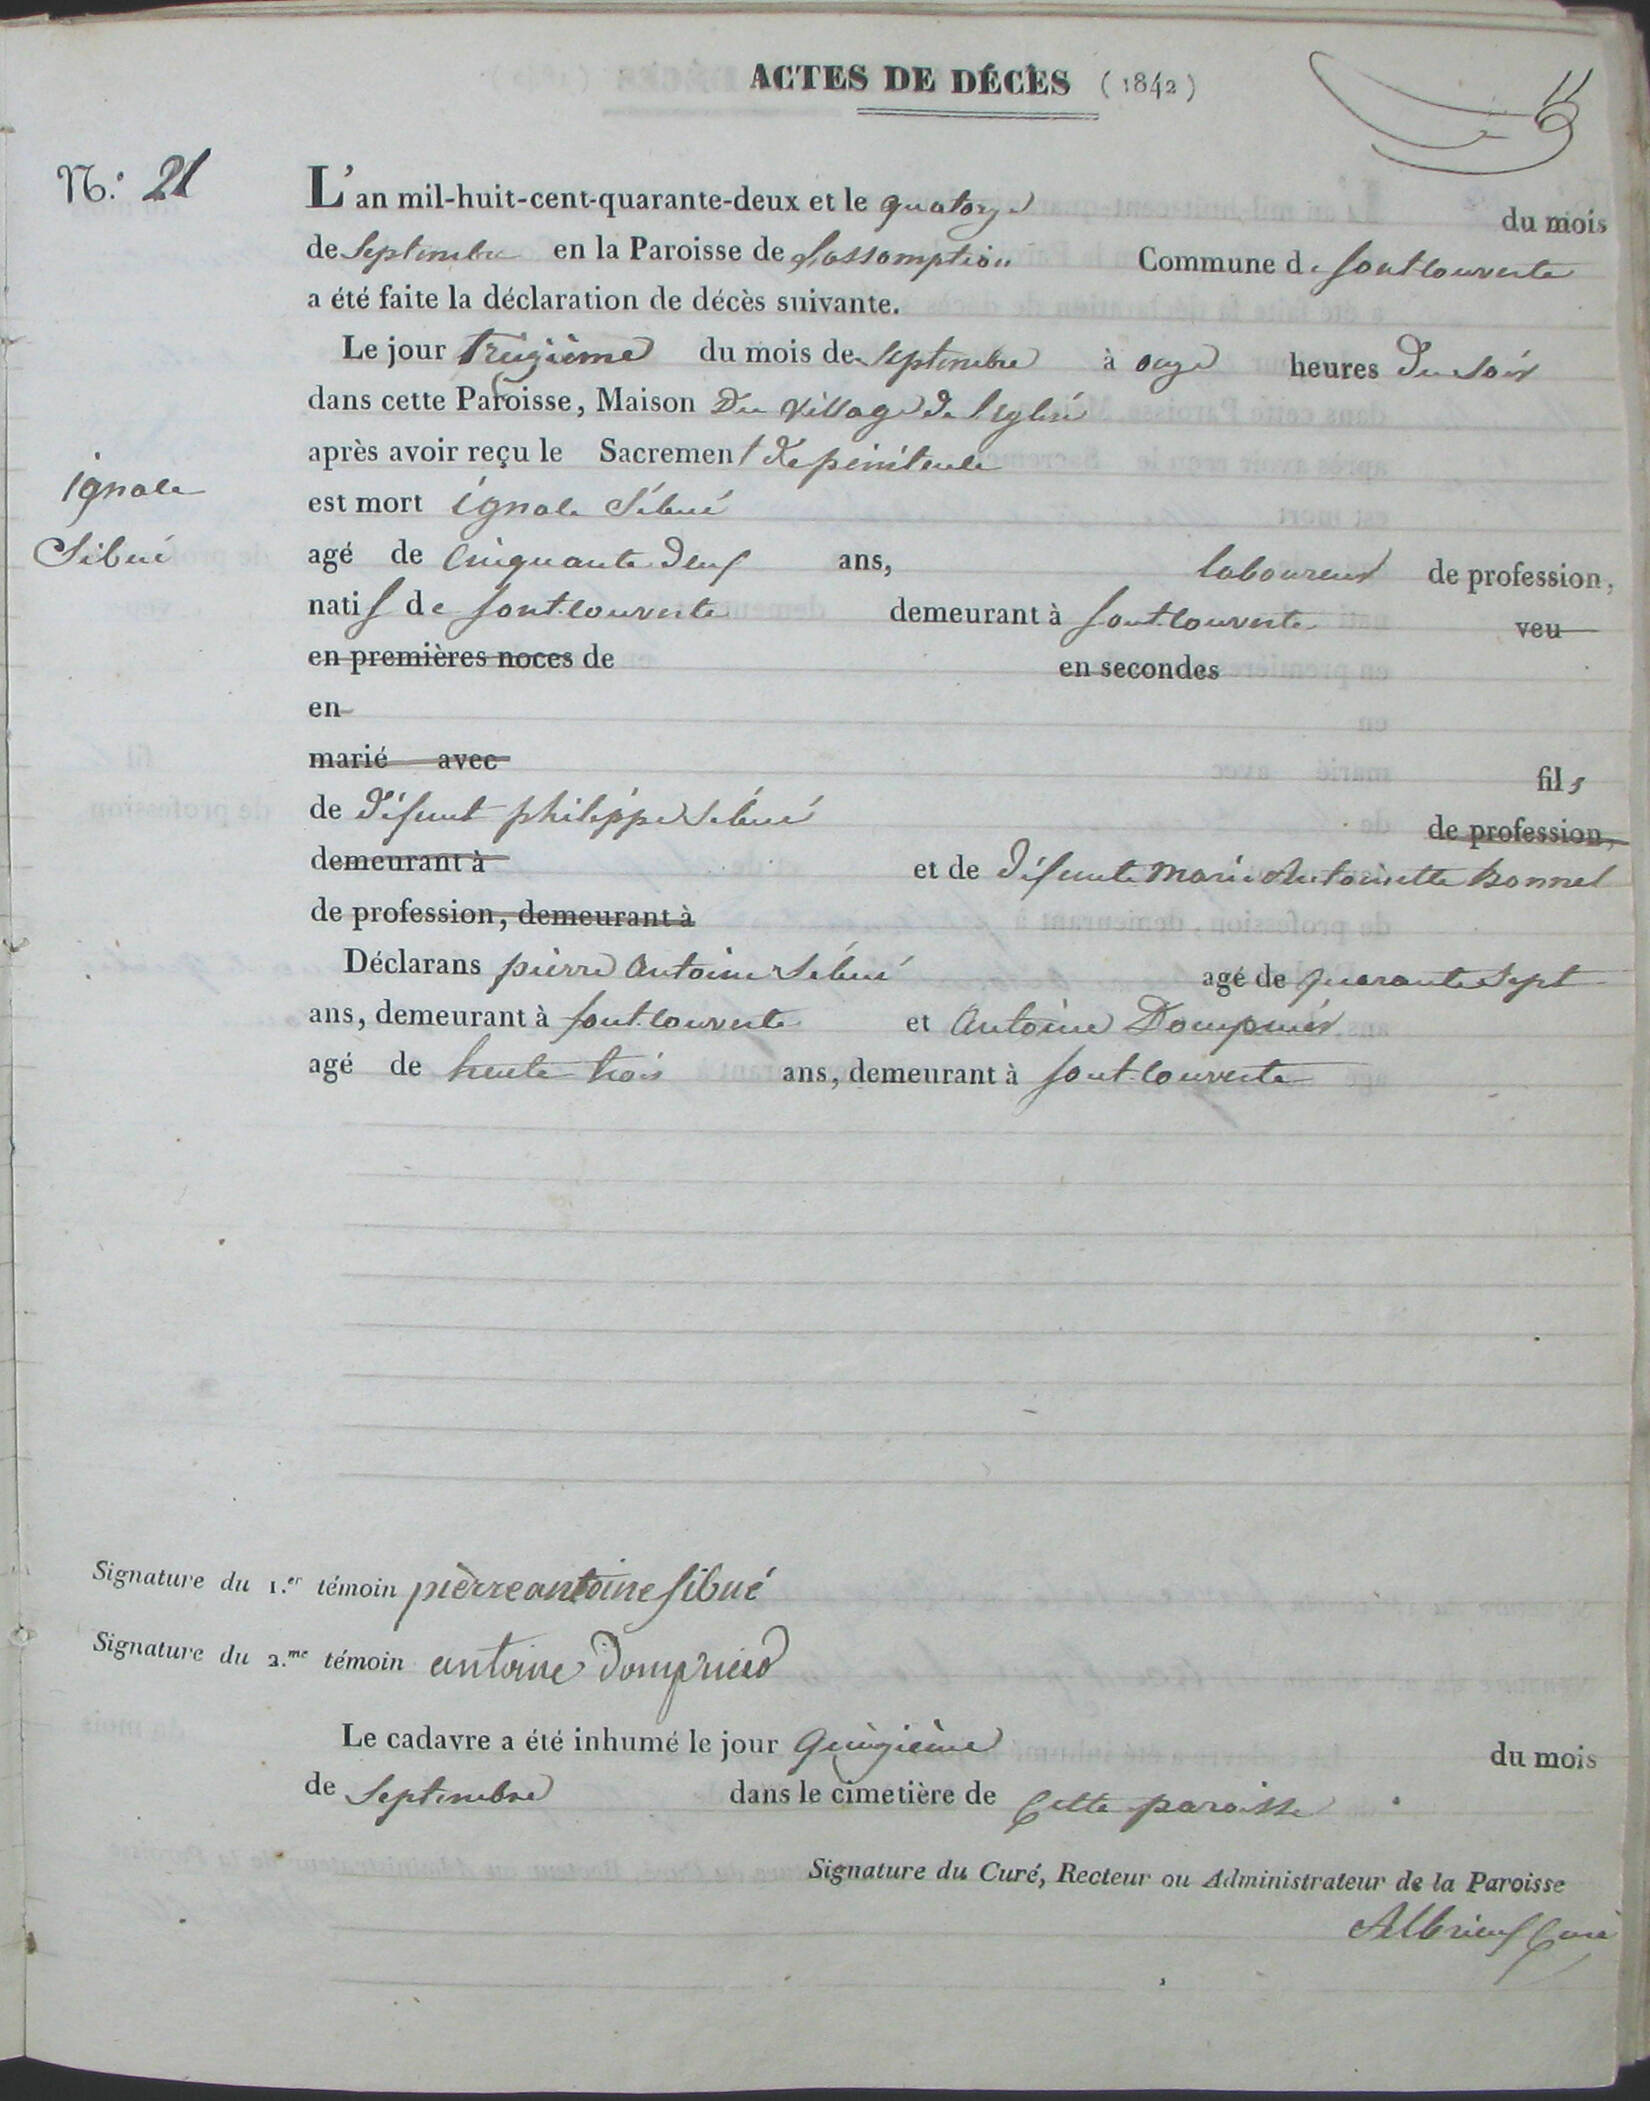 ACTES DE DÉCÈS (1842)
N.° 21
L'an mil-huit-cent-quarante-deux et le quatorze du mois
de Septembre en la Paroisse de L'assomption Commune de fontcouverte
a été faite la déclaration de décès suivante.
Le jour treizième du mois de Septembre à onze heures du soir
dans cette Paroisse, Maison du village de l'eglise
après avoir reçu le Sacrement de pénitence
ignace
est mort ignace Sibué
Sibué
agé de cinquante deux ans, laboureur de profession,
natif de fontcouverte demeurant à fontcouverte veu
en premières noces de en secondes
en
marié avec fils
de défunt philippe Sibué de profession,
demeurant à et de défunte marie Antoinette Bonnel
de profession, demeurant à
Déclarans pierre Antoine Sibué agé de quarante Sept
ans, demeurant à fontcouverte et Antoine Dompnier
agé de trente trois ans, demeurant à fontcouverte
Signature du 1.er témoin pièrre antoine sibué
Signature du 2.me témoin antoine dompnier
Le cadavre a été inhumé le jour quinzième du mois
de Septembre dans le cimetière de cette paroisse
Signature du Curé, Recteur ou Administrateur de la Paroisse
Albrieux Curé